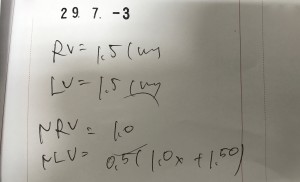 29. 7. -3
RV = 1.5 (m)
LV = 1.5 (m)
NRV = 1.0
NLV = 0.5 (1.0x + 1.50)